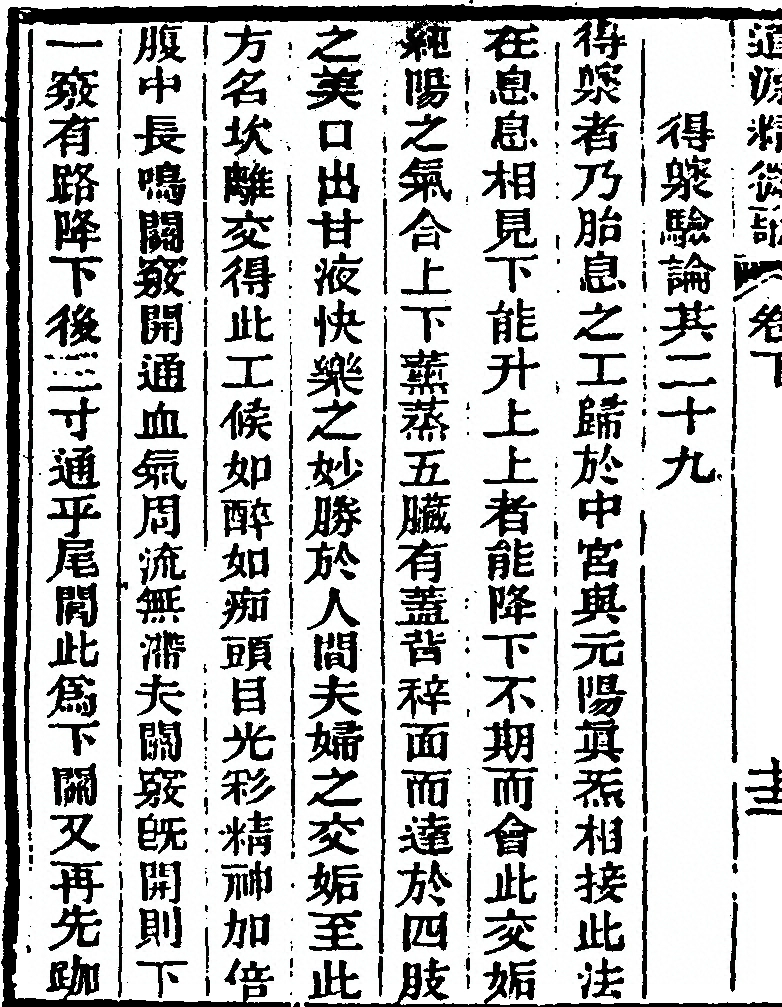 道源精微歌 卷下
得藥驗論其二十九
得藥者乃胎息之工歸於中宮與元陽眞炁相接此法
在息息相見下能升上上者能降下不期而會此交姤
純陽之氣合上下薰蒸五臟有蓋背稡面而達於四肢
之美口出甘液快樂之妙勝於人間夫婦之交姤至此
方名坎離交得此工候如醉如痴頭目光彩精神加倍
腹中長鳴關竅開通血氣周流無滯夫關竅旣開則下
一竅有路降下後三寸通乎尾閭此爲下關又再先跏